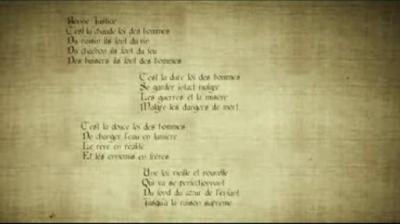 Bonne Justice
C'est la chaude loi des hommes
Du raisin ils font du vin
Du charbon ils font du feu
Des baisers ils font des hommes
C'est la dure loi des hommes
Se garder intact malgré
Les guerres et la misère
Malgré les dangers de mort
C'est la douce loi des hommes
De changer l'eau en lumière
Le rêve en réalité
Et les ennemis en frères
Une loi vieille et nouvelle
Qui va se perfectionnant
Du fond du cœur de l'enfant
Jusqu'à la raison suprême